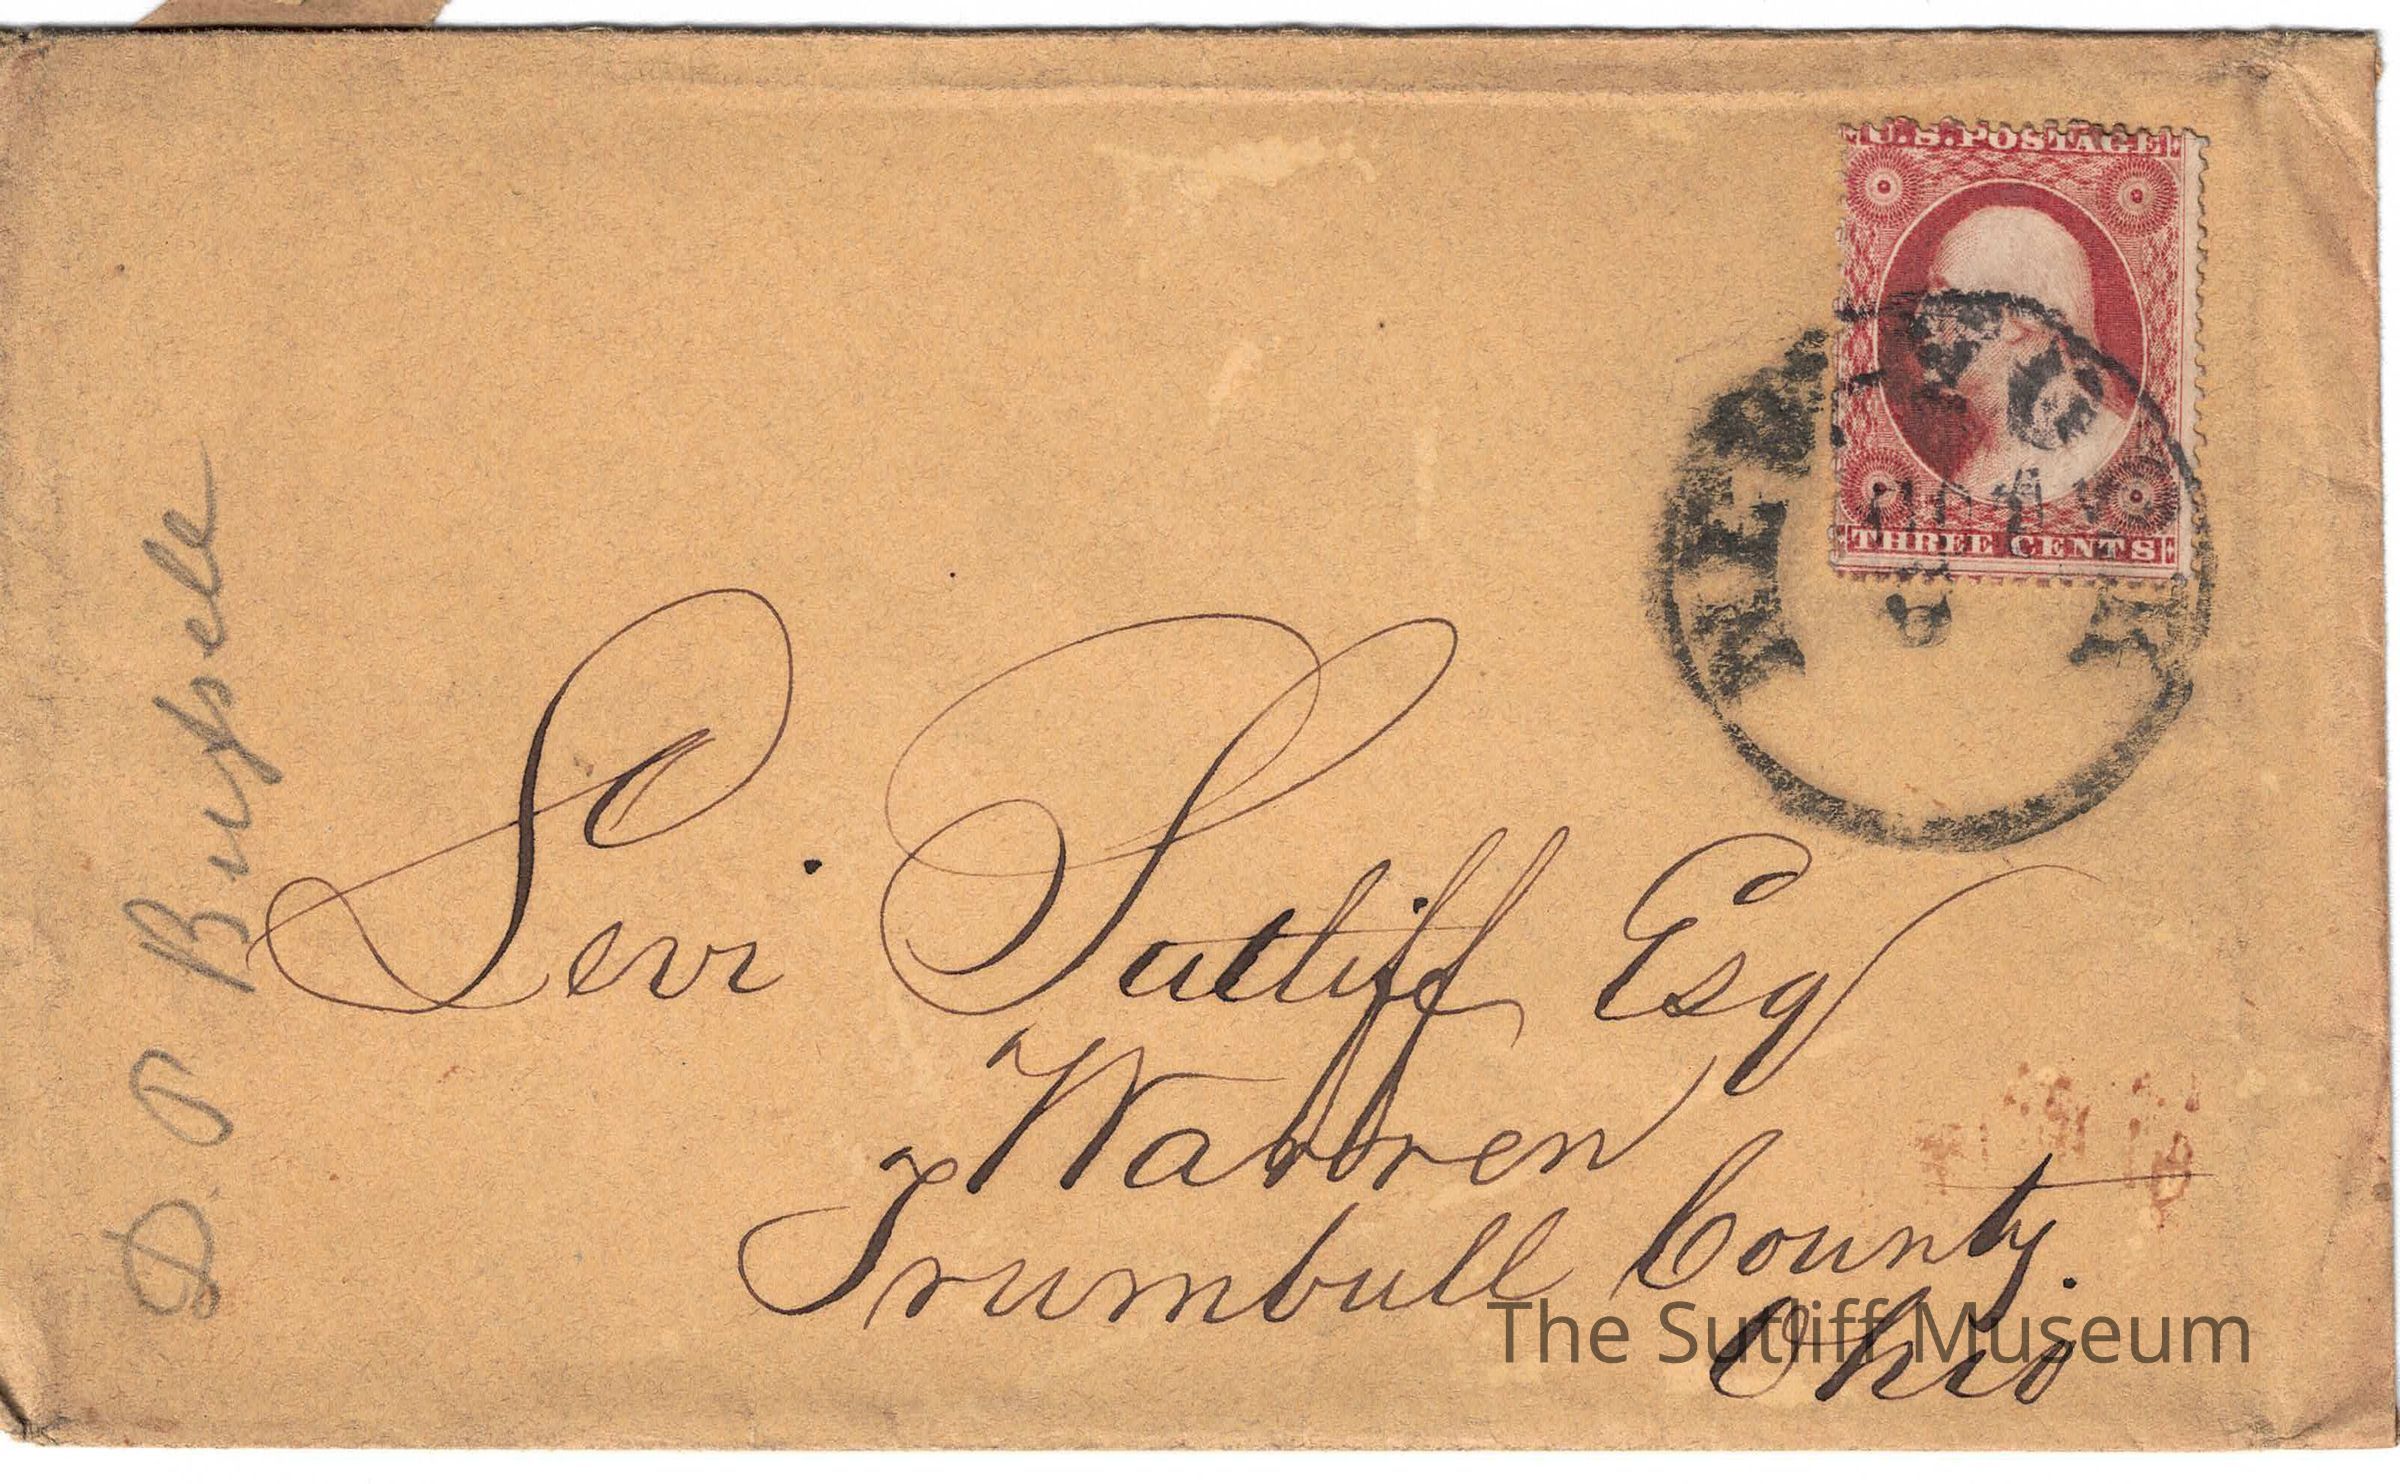 U.S. POSTAGE
THREE CENTS
Levi Sutliff Esq
Warren
Trumbull County.
Ohio
The Sutliff Museum